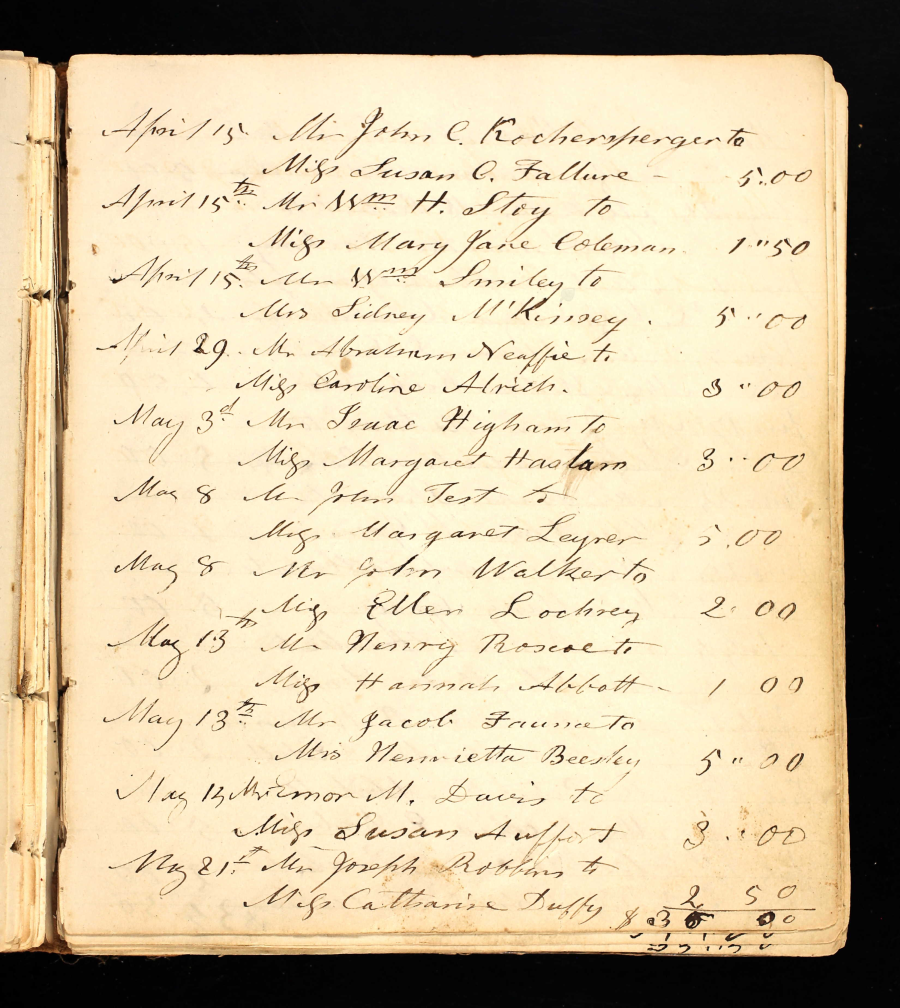 April 15. Mr John C. Kochersperger to
Miss Susan C. Fallure - 5.00
April 15th Mr Wm H. Stoy to
Miss Mary Jane Coleman 1"50
April 15th Mr Wm Smiley to
Mrs Sidney McKinsey. 5"00
April 29. Mr Abraham Neaffie to
Miss Caroline Alrich. 3"00
May 3d Mr Isaac Higham to
Miss Margaret Haslam 3"00
May 8 Mr John Test to
Miss Margaret Leyrer 5.00
May 8 Mr John Walker to
Miss Ellen Lochrey 2"00
May 13th Mr Henry Roscoe to
Miss Hannah Abbott - 1 00
May 13th Mr Jacob Fauna to
Mrs Henrietta Beesley 5"00
May Mr Emor M. Davis to
Miss Susan Auffort 3"00
May 21st Mr Joseph Robbins to
Miss Catharine Duffy 2 50
$